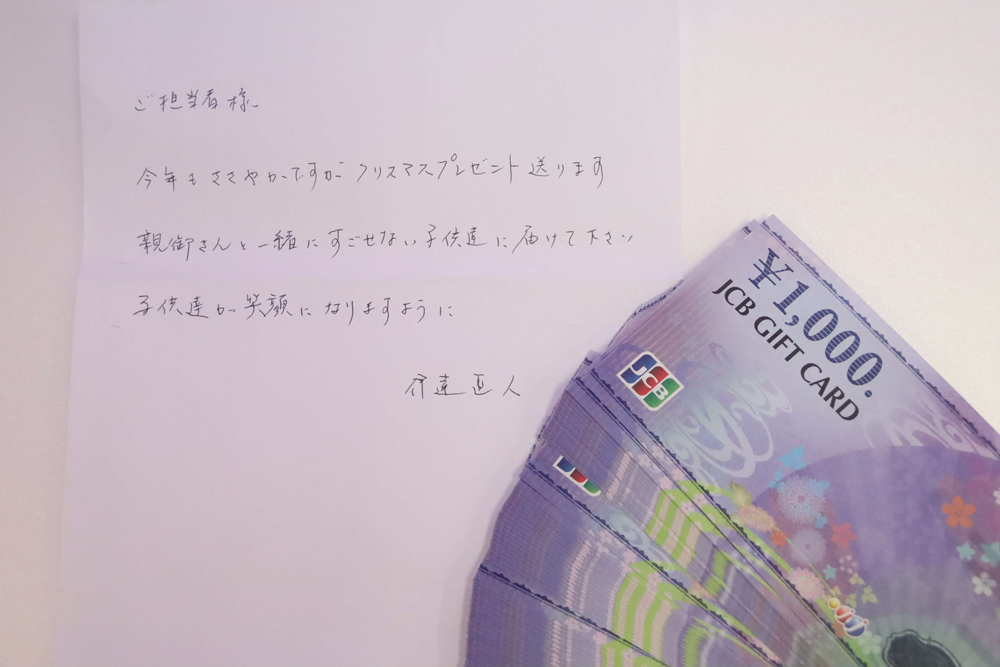 ご担当者様
今年もささやかですが クリスマスプレゼント送ります
親御さんと一緒にすごせない子供達に届けて下さい
子供達が笑顔になりますように
伊達直人
¥1,000.
JCB GIFT CARD
JCB